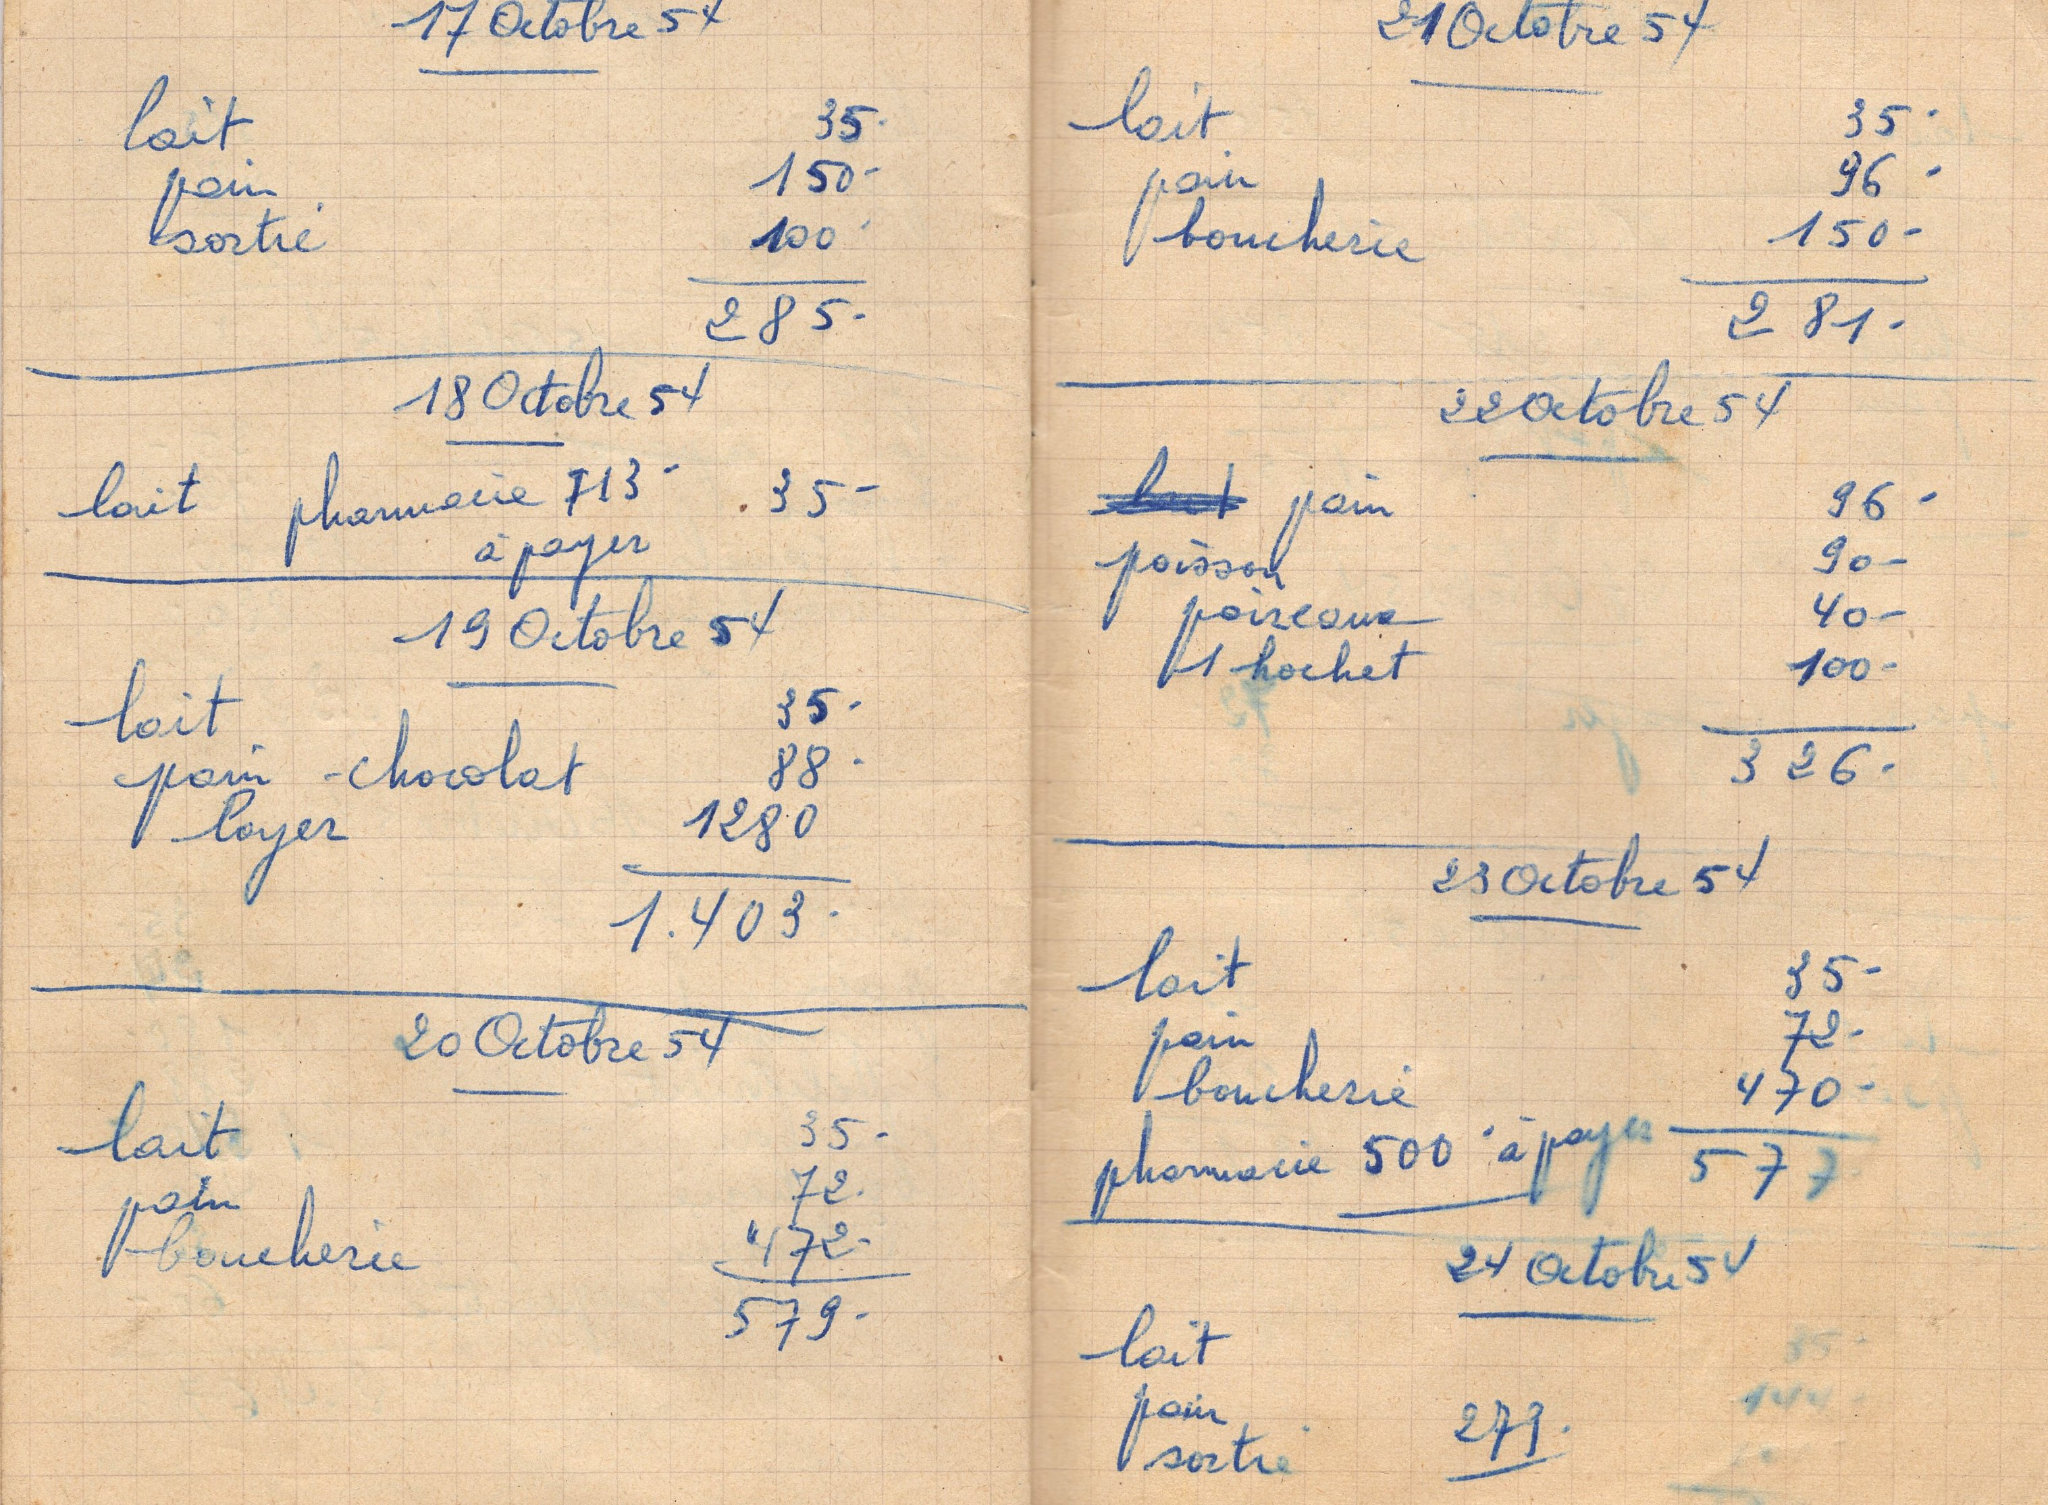 17 Octobre 54
lait 35.
pain 150-
sortie 100.
285.
18 Octobre 54
lait pharmacie 713- 35-
à payer
19 Octobre 54
lait 35.
pain - chocolat 88.
loyer 1280
1.403.
20 Octobre 54
lait 35-
pain 72.
boucherie 472-
579.
21 Octobre 54
lait 35-
pain 96-
boucherie 150-
281.
22 Octobre 54
pain 96-
poisson 90-
poireaux 40-
1 hochet 100-
326.
23 Octobre 54
lait 35-
pain 72-
boucherie 470-
pharmacie 500. à payer 577
24 Octobre 54
lait
pain 279.
sortie